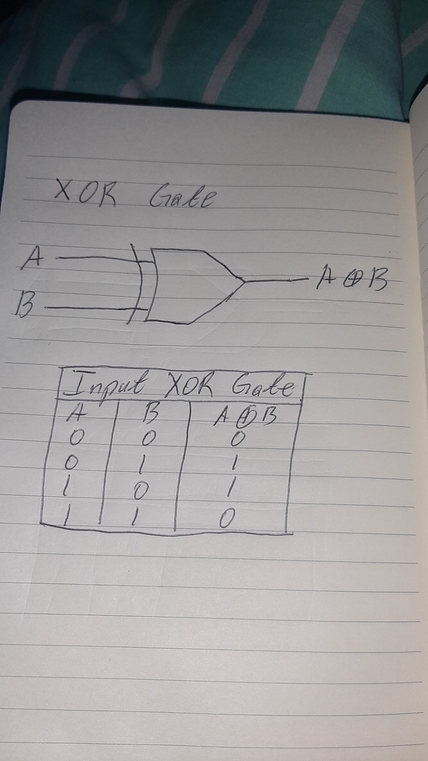 XOR Gate
A
A ⊕ B
B
Input XOR Gate
A B A ⊕ B
0 0 0
0 1 1
1 0 1
1 1 0